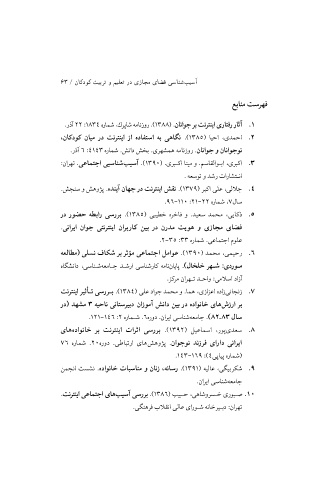 آسیب‌شناسی فضای مجازی در تعلیم و تربیت کودکان / ۶۳
فهرست منابع
۱. آثار رفتاری اینترنت بر جوانان. (۱۳۸۸). روزنامه شاپرک. شماره: ۱۸۳۴: ۲۲ آذر.
۲. احمدی، احیا (۱۳۸۵). نگاهی به استفاده از اینترنت در میان کودکان،
نوجوانان و جوانان. روزنامه همشهری. بخش دانش. شماره: ۴۱۴۳: ۶ آذر.
۳. اکبری، ابوالقاسم، و مینا اکبری، (۱۳۹۰). آسیب‌شناسی اجتماعی. تهران:
انتشارات رشد و توسعه.
۴. جلالی، علی اکبر (۱۳۷۹). نقش اینترنت در جهان آینده. پژوهش و سنجش.
سال۷، شماره ۲۲-۲۱: ۱۱۰-۹۶.
۵. ذکایی، محمد سعید. و فاخره خطیبی (۱۳۸۵). بررسی رابطه حضور در
فضای مجازی و هویت مدرن در بین کاربران اینترنتی جوان ایرانی.
علوم اجتماعی. شماره ۳۳: ۳۵-۲.
۶. رحیمی، محمد (۱۳۹۰). عوامل اجتماعی مؤثر بر شکاف نسلی (مطالعه
موردی: شهر خلخال). پایان‌نامه کارشناسی ارشد جامعه‌شناسی، دانشگاه
آزاد اسلامی: واحد تهران مرکز.
۷. زنجانی‌زاده اعزازی، هما. و محمد جواد علی (۱۳۸۴). بررسی تأثیر اینترنت
بر ارزش‌های خانواده در بین دانش آموزان دبیرستانی ناحیه ۳ مشهد (در
سال ۸۳ـ۸۲). جامعه‌شناسی ایران. دوره۶، شماره ۲: ۱۴۶-۱۲۱.
۸. سعدی‌پور، اسماعیل (۱۳۹۲). بررسی اثرات اینترنت بر خانواده‌های
ایرانی دارای فرزند نوجوان. پژوهش‌های ارتباطی. دوره۲۰. شماره ۷۶
(شماره پیاپی۴): ۱۱۹-۱۴۳.
۹. شکربیگی، عالیه (۱۳۹۱). رسانه، زنان و مناسبات خانواده. نشست انجمن
جامعه‌شناسی ایران.
۱۰. صبوری خسروشاهی، حبیب (۱۳۸۶). بررسی آسیب‌های اجتماعی اینترنت.
تهران: دبیرخانه شورای عالی انقلاب فرهنگی.